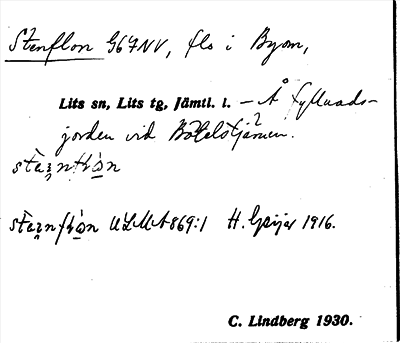 Stenflon G67NV, flo i Byom,
Lits sn, Lits tg, Jämtl. l. – Å Fyllnads-
jorden vid Botelstjärnen.
ULMA 869:1 H. Geijer 1916.
C. Lindberg 1930.